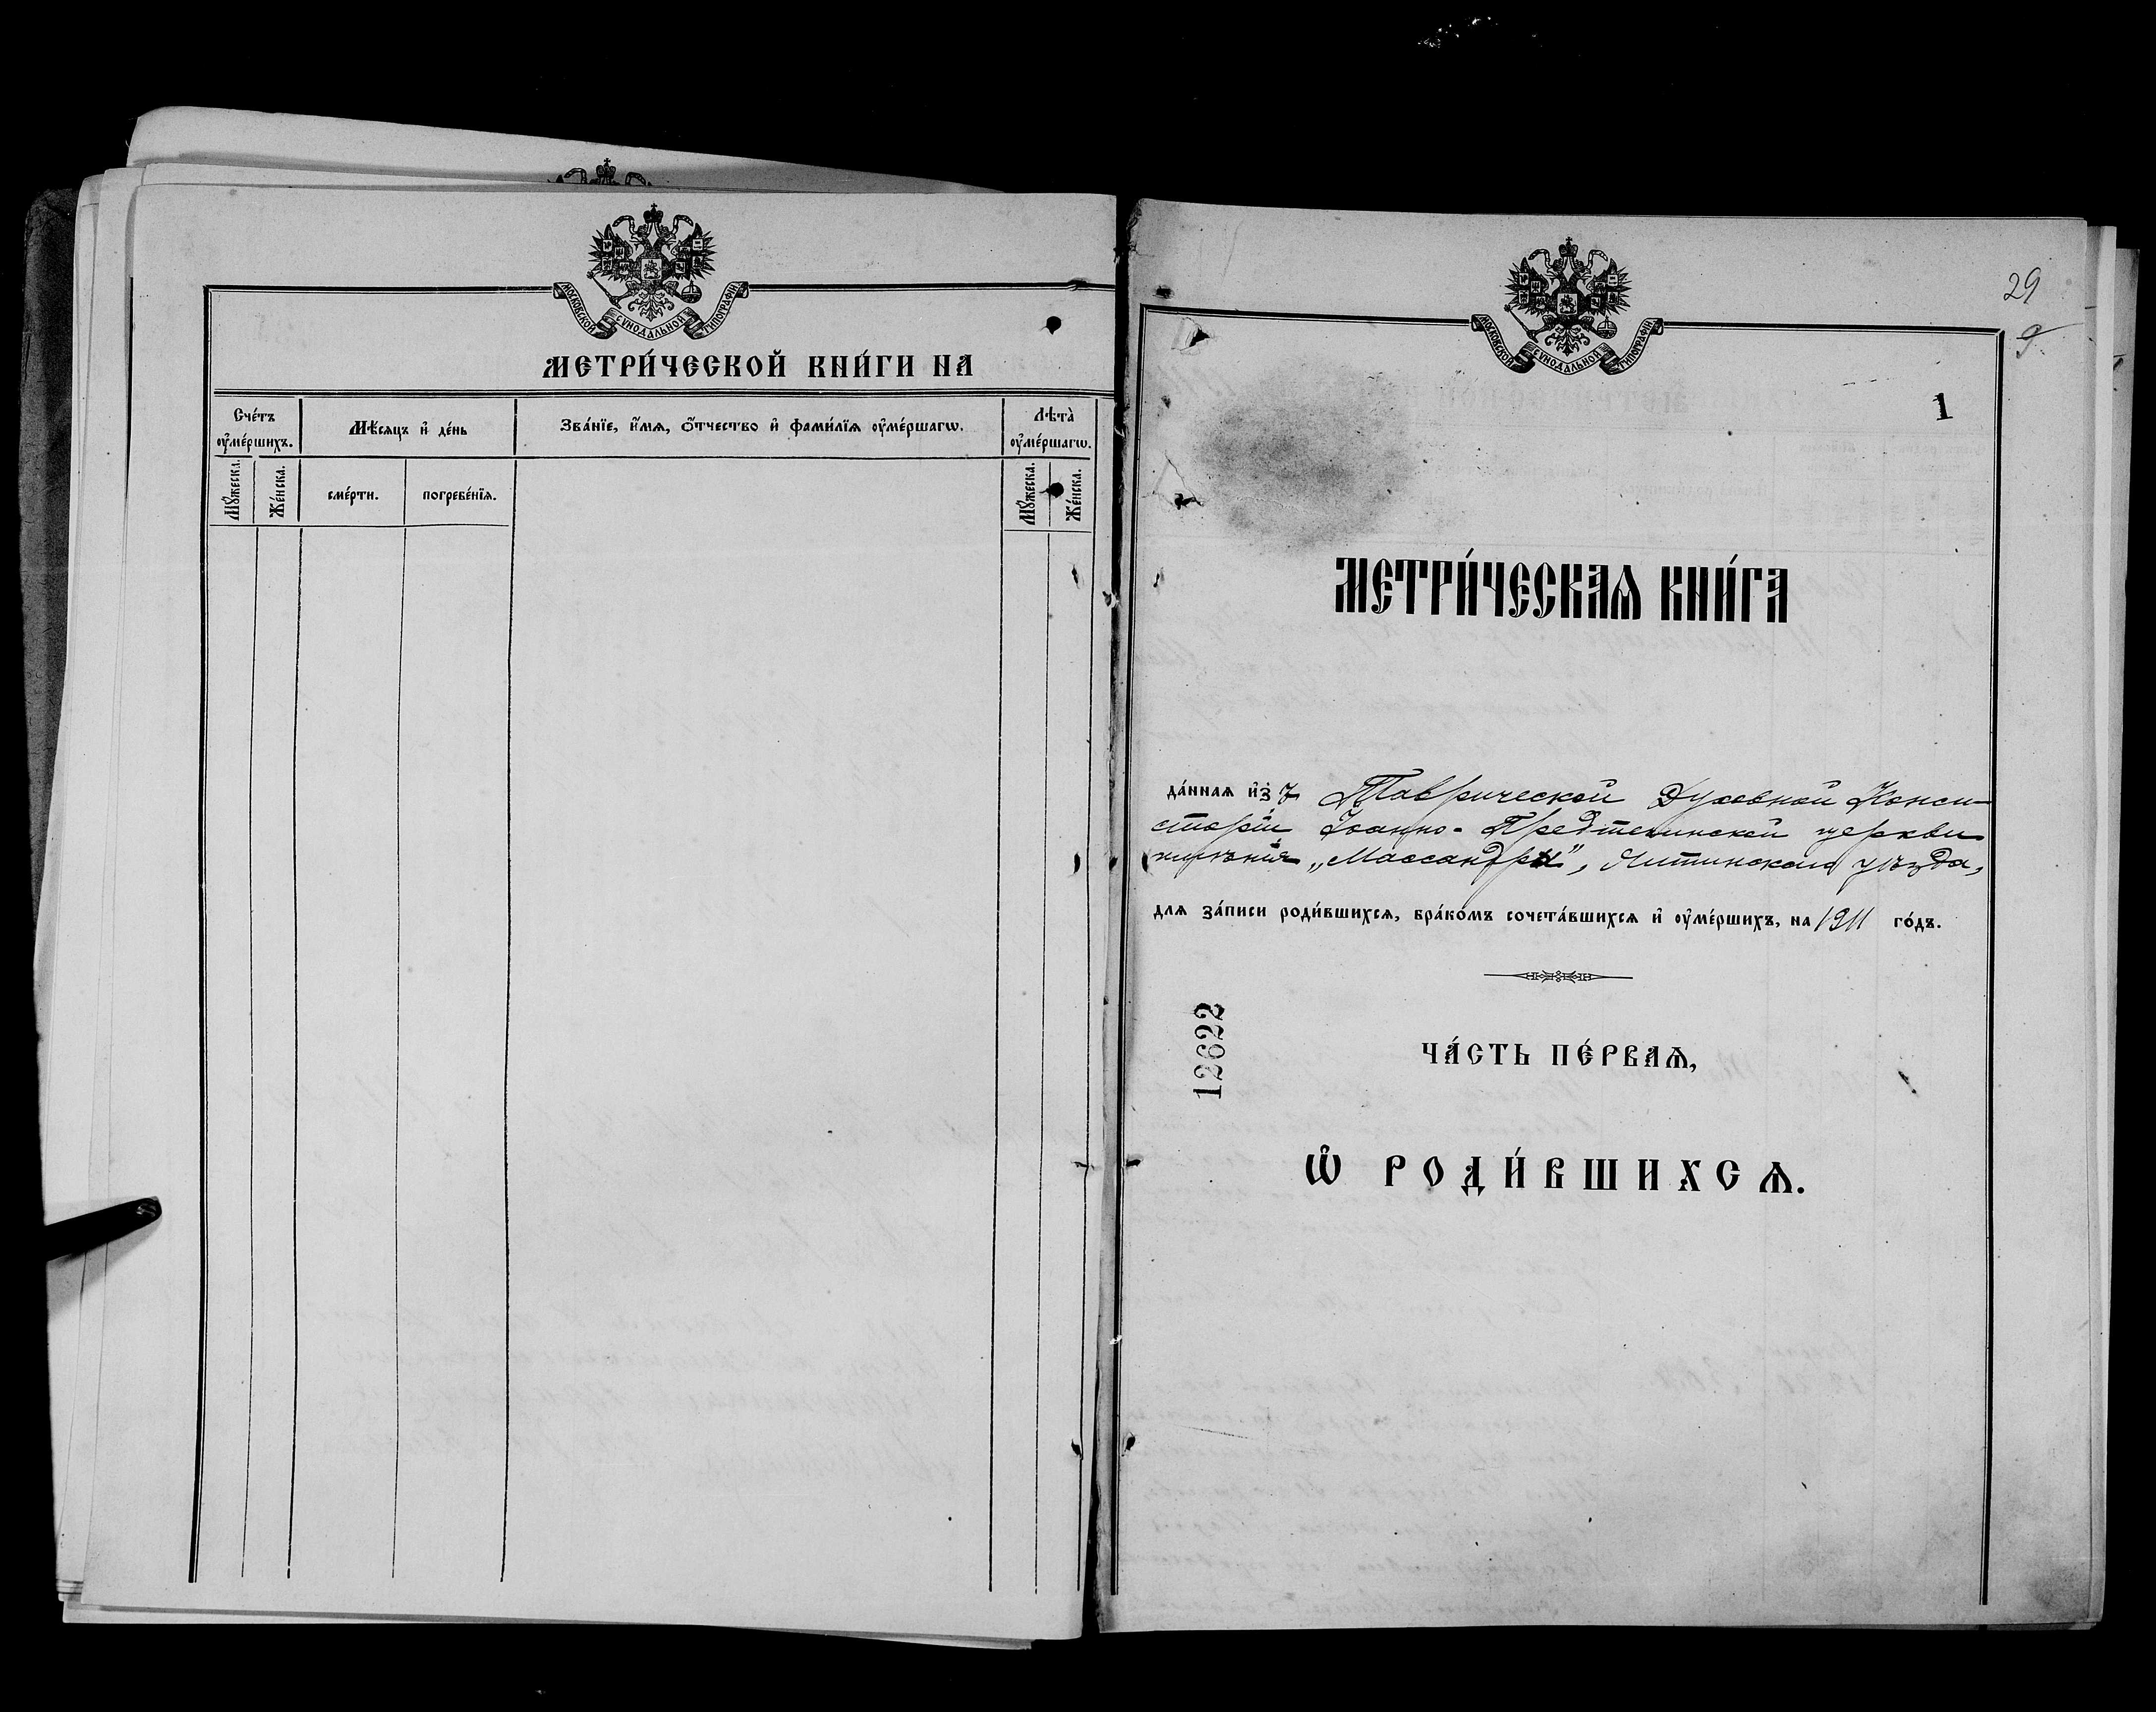 МОСКОВСКОЙ СѴНОДАЛЬНОЙ ТИПОГРАФІИ
МЕТРИ́ЧЕСКОЙ КНИ́ГИ НА
Сче́тъ ᲂу҆ме́ршихъ.
Мѣ́сяцъ и҆ де́нь
Зва́нїе, и҆́мѧ, ѻ҆́тчество и҆ фами́лїѧ ᲂу҆ме́ршагѡ.
Лѣта̀ ᲂу҆ме́ршагѡ.
Мꙋ́жеска.
Же́нска.
сме́рти.
погребе́нїѧ.
Мꙋ́жеска.
Же́нска.
29
9
МОСКОВСКОЙ СѴНОДАЛЬНОЙ ТИПОГРАФІИ
1
МЕТРИ́ЧЕСКАѦ КНИ́ГА
да́ннаѧ и҆зъ Таврической Духовной Конси-
сторіи Іоанно-Предтечинской церкви
имѣнія „Массандры", Ялтинскаго уѣзда,
длѧ за́писи роди́вшихсѧ, бра́комъ сочета́вшихсѧ и҆ ᲂу҆ме́ршихъ, на 1911 го́дъ.
12622
ЧА́СТЬ ПЕ́РВАѦ,
Ѡ҆ РОДИ́ВШИХСѦ.